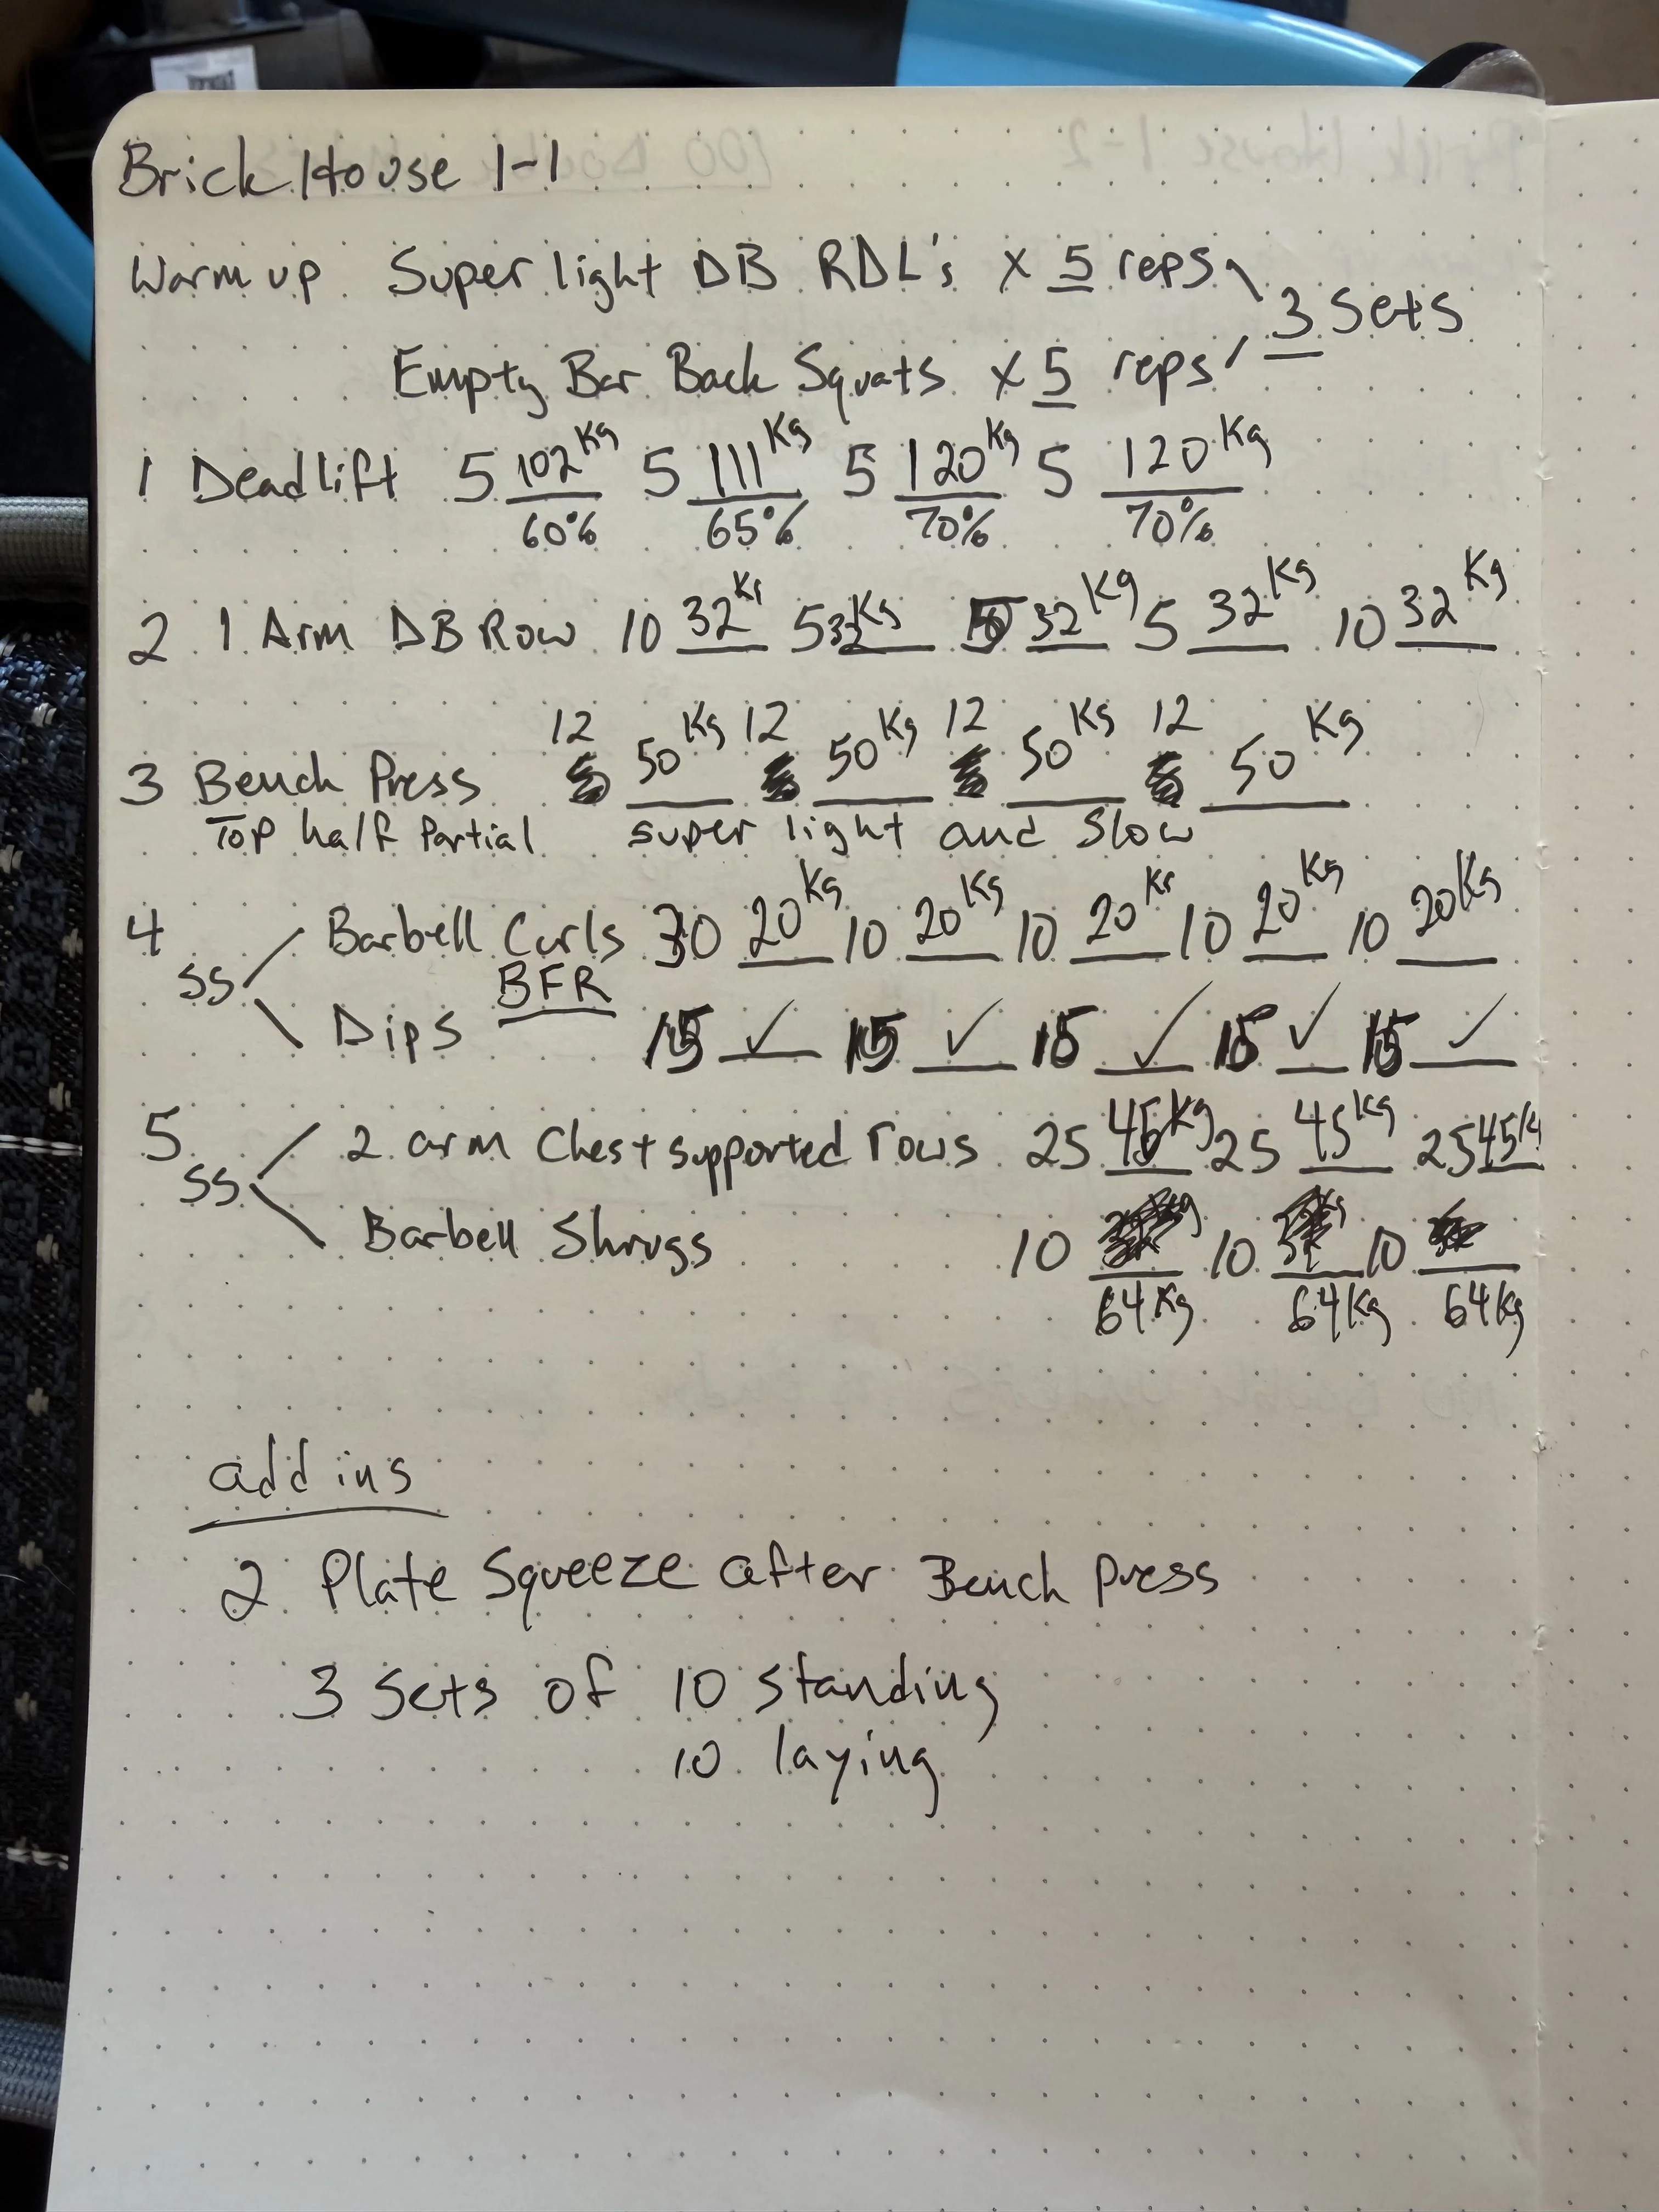 Brick House 1-1
Warm up Super light DB RDL's x 5 reps
3 Sets
Empty Bar Back Squats x 5 reps
1 Deadlift 5 102Kg 5 111Kg 5 120Kg 5 120Kg
60% 65% 70% 70%
2 1 Arm DB Row 10 32Kg 5 32Kg 32Kg 5 32Kg 10 32Kg
12 12 12 12
3 Bench Press 50Kg 50Kg 50Kg 50Kg
Top half Partial super light and Slow
4 SS Barbell Curls 30 20Kg 10 20Kg 10 20Kg 10 20Kg 10 20Kg
BFR
Dips 15 ✓ 15 ✓ 15 ✓ 15 ✓ 15 ✓
5 SS 2 arm Chest supported rows 25 45Kg 25 45Kg 25 45K
Barbell Shrugs 10 10 10
64Kg 64Kg 64Kg
add ins
2 Plate Squeeze after Bench press
3 Sets of 10 standing
10 laying